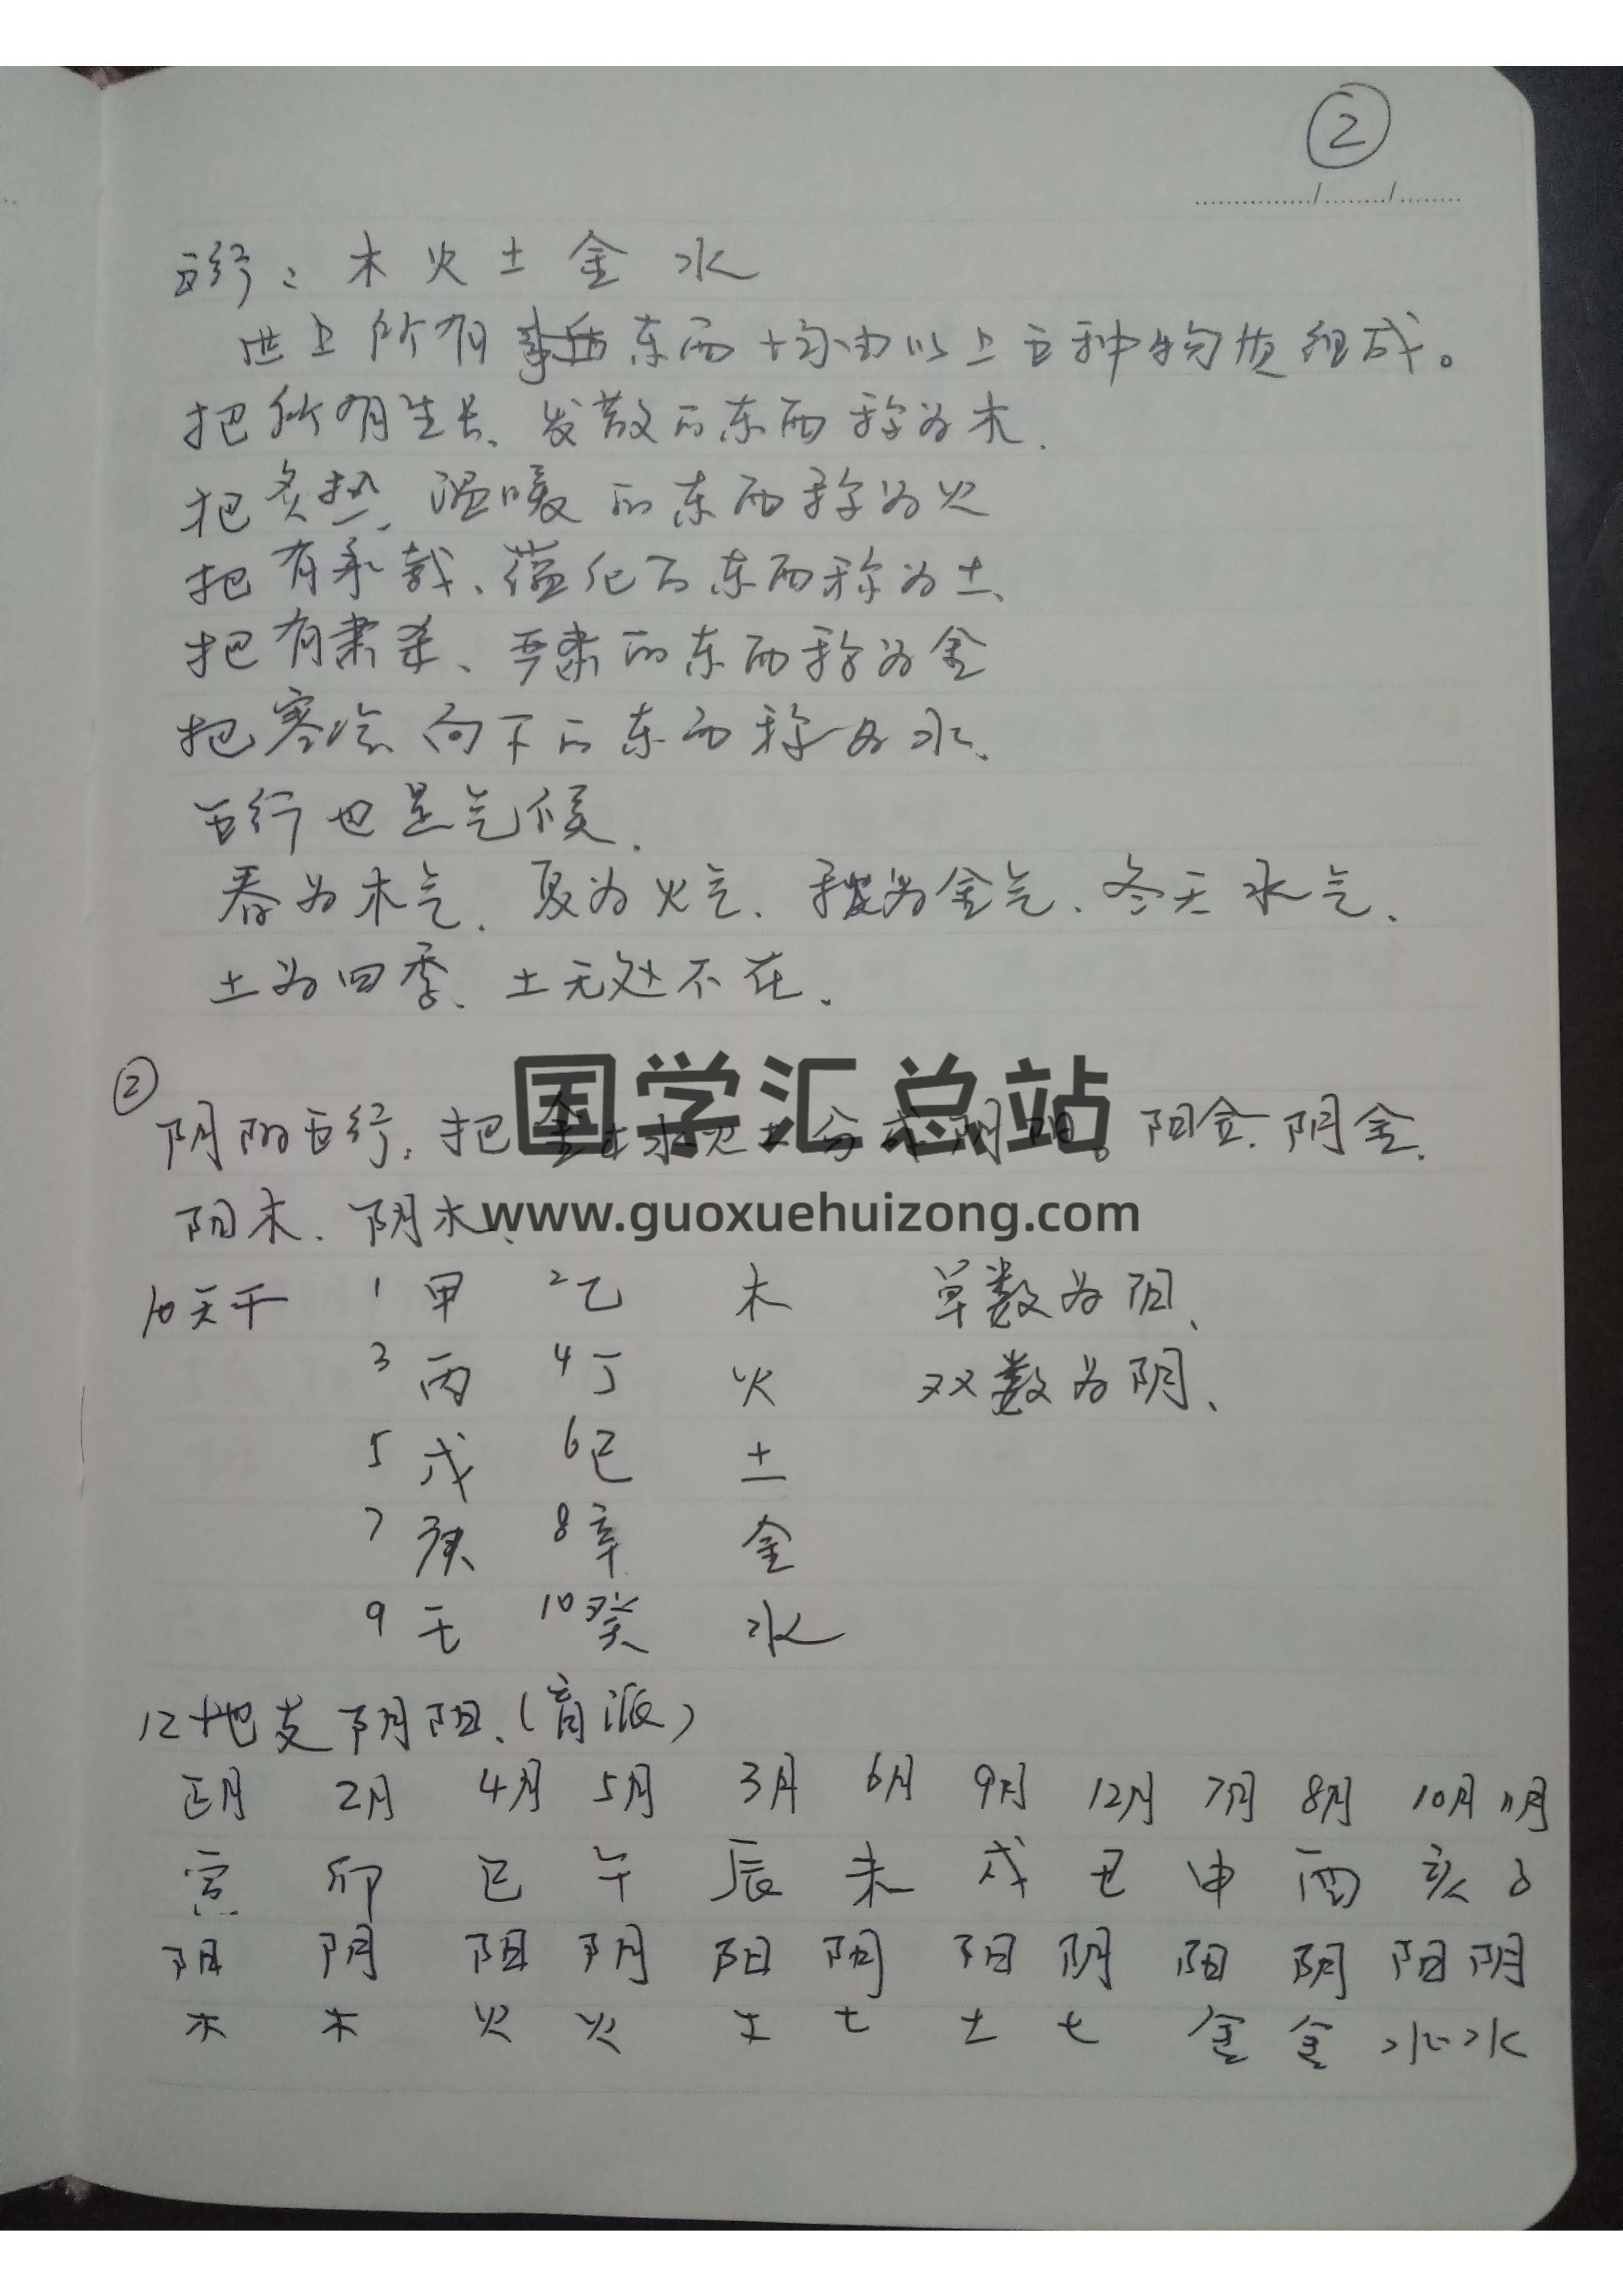 ②
五行：木火土金水
世上所有东西均由以上五种物质组成。
把所有生长、发散的东西称为木.
把炙热、温暖的东西称为火
把有承载、蕴化的东西称为土、
把有肃杀、严肃的东西称为金
把寒冷向下的东西称为水、
五行也是气候.
春为木气、夏为火气、秋为金气、冬天水气、
土为四季、土无处不在.
国学汇总站
② 阴阳五行：把金木水火土分成阴阳。阳金.阴金.
阳木.阴木、
www.guoxuehuizong.com
10天干 1甲 2乙 木 单数为阳、
3丙 4丁 火 双数为阴、
5戊 6己 土
7庚 8辛 金
9壬 10癸 水
12地支阴阳、(盲派)
正月 2月 4月 5月 3月 6月 9月 12月 7月 8月 10月 11月
寅 卯 巳 午 辰 未 戌 丑 申 酉 亥 子
阳 阴 阳 阴 阳 阴 阳 阴 阳 阴 阳 阴
木 木 火 火 土 土 土 土 金 金 水 水